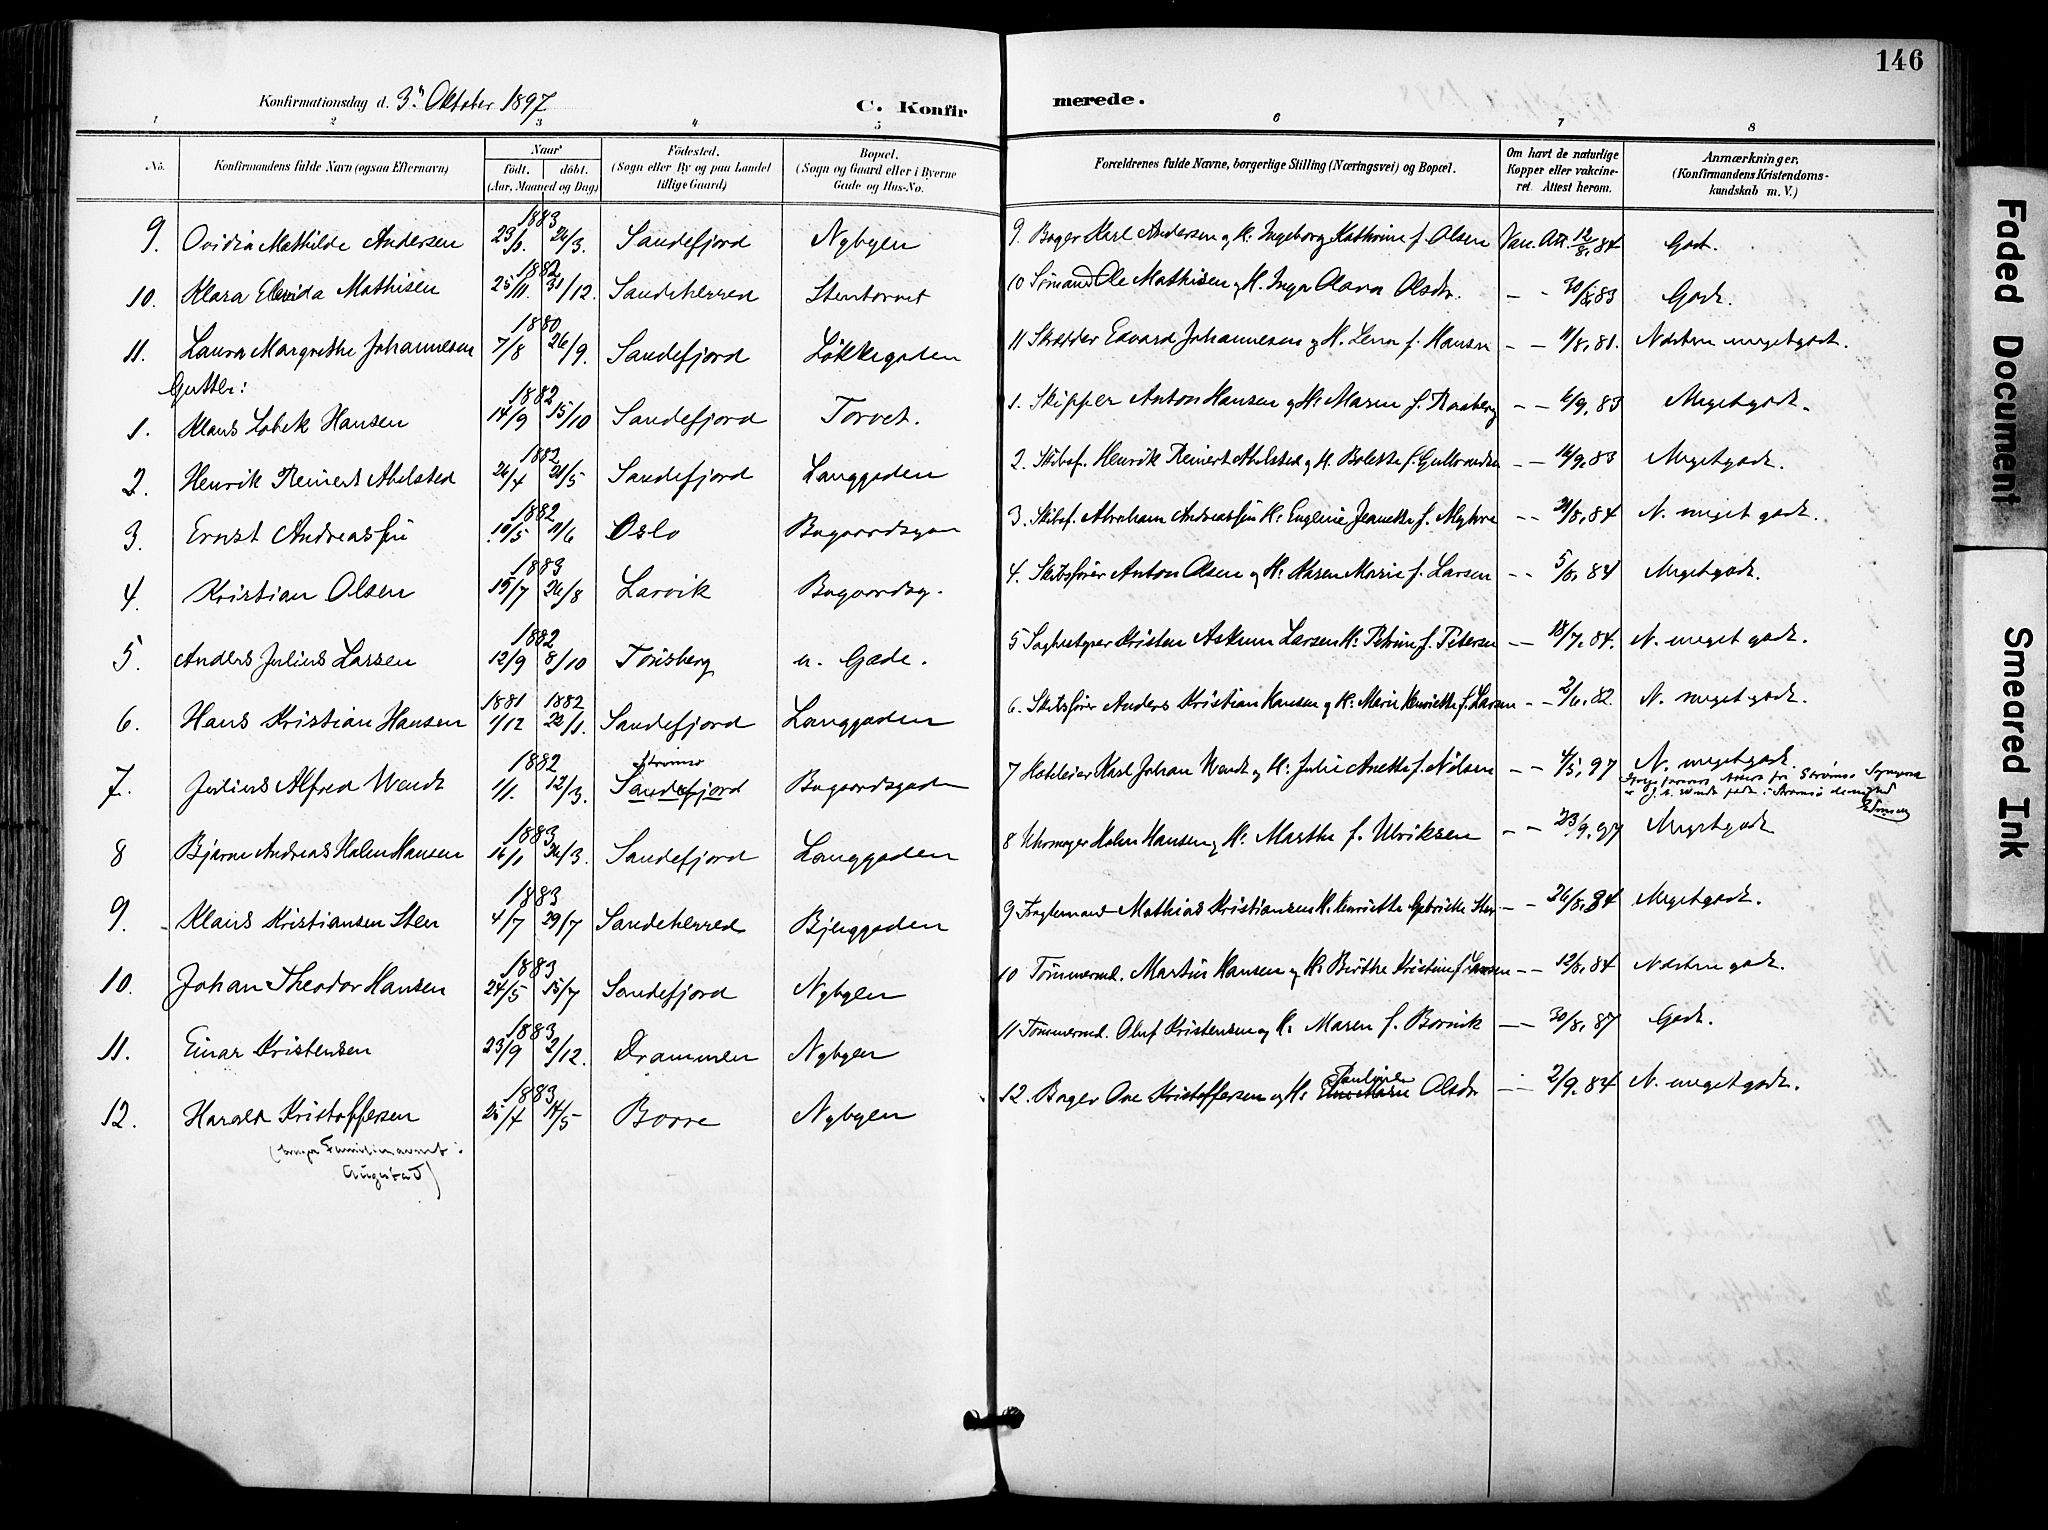 146
Konfirmationsdag d. 3' Oktober 1897
C. Konfir
merede.
1 2 3 4 5 6 7 8
No.
Konfirmandens fulde Navn (ogsaa Efternavn)
Naar
født. døbt.
(Aar, Maaned og Dag)
Fødested.
(Sogn eller By og paa Landet
tillige Gaard)
Bopæl.
(Sogn og Gaard eller i Byerne
Gade og Hus-No.
Forældrenes fulde Navne, borgerlige Stilling (Næringsvei) og Bopæl.
Om havt de naturlige
Kopper eller vakcine-
ret. Attest herom.
Anmærkninger.
(Konfirmandens Kristendoms-
kundskab m. V.)
1883
9. Ovidia Mathilde Andersen 23/1. 26/3. Sandefjord Nybyen 9. Bager Karl Andersen og H. Ingeborg Kathrine f. Olsen Vac. Att. 12/8. 84 Godt.
1882
10. Klara Elvida Mathisen 25/11. 31/12. Sandeherred Stentorvet 10 Sømand Ole Mathisen og H. Inga Olava Olsdr. — - 30/8 83 Godt.
1880
11. Laura Margrethe Johannesen 7/8 26/9. Sandefjord Løkkegaden 11 Skrædder Edvard Johannesen og H. Lena f. Hansen — - 11/8. 81. Næsten megetgodt.
Gutter:
1882
1. Klaus Lobek Hansen 14/9 15/10 Sandefjord Torvet. 1. Skipper Anton Hansen og H. Maren f. — - 6/9. 83 Megetgodt.
1882
2. Henrik Reinert Abelsted 26/4 21/5 Sandefjord Langgaden 2. Skibsf. Henrik Reinert Abelsted og H. Bolette f. Gulbrandsen — - 14/9. 83 Megetgodt.
1882
3. Ernst Andreassen 10/5 11/6 Oslo Bugaardsgaden 3. Skibsf. Abraham Andreassen H. Eugenie Jeanette f. — - 21/8. 84 N. meget godt.
1883
4. Kristian Olsen 15/7 26/8 Larvik Bugaardsg. 4. Skibsfører Anton Olsen og H. Maren Marie f. Larsen - - 5/8. 84 Megetgodt.
1882
5. Anders Julius Larsen 12/9 8/10 Tønsberg n. Gade. 5 Kristen Larsen H. Petrine f. Petersen — - 18/7. 84. N. meget godt.
1881 1882
6. Hans Kristian Hansen 1/12 22/1. Sandefjord Langgaden 6. Skibsfører Anders Kristian Hansen og H. Marie Henriette f. Larsen — - 2/6. 82. N. megetgodt.
1882 Strømsø
7. Julius Alfred Wendt 1/1. 12/3. Sandefjord Bugaardsgaden 7 Hoteleier Karl Johan Wendt og H. Julie Anette f. Nilsen — - 4/5. 97 N. megetgodt.
Strømsø
1883
8 Bjarne Andreas Holm Hansen 16/1 26/3. Sandefjord Langgaden 8 Uhrmager Holm Hansen og H. Marthe f. Ulriksen - - 23/9. 97 Megetgodt
1883
9. Klaus Kristiansen Sten 4/7 29/7 Sandeherred Bjerggaden 9 Fragtemand Mathias Kristiansen H. Henriette Gebriette Sten — - 26/8. 84 Megetgodt.
1883
10. Johan Theodor Hansen 24/5 15/7 Sandefjord Nybyen 10 Tømmermd. Martin Hansen og H. Birthe Kristine f. Larsen — - 12/8. 84 Næsten godt.
1883
11. Einar Kristensen 23/9 2/12. Drammen Nybyen 11 Tømmermd. Oluf Kristensen og H. Maren f. Borvik — - 30/8. 87 Godt.
1883
12. Harald Kristoffersen 25/4 14/5 Borre Nybyen 12. Bager Ove Kristoffersen og H. Pauline Olsdr. — - 2/9. 84 N. megetgodt.
(bruger Familienavnet:
Augestad)
Faded Document
Smeared Ink